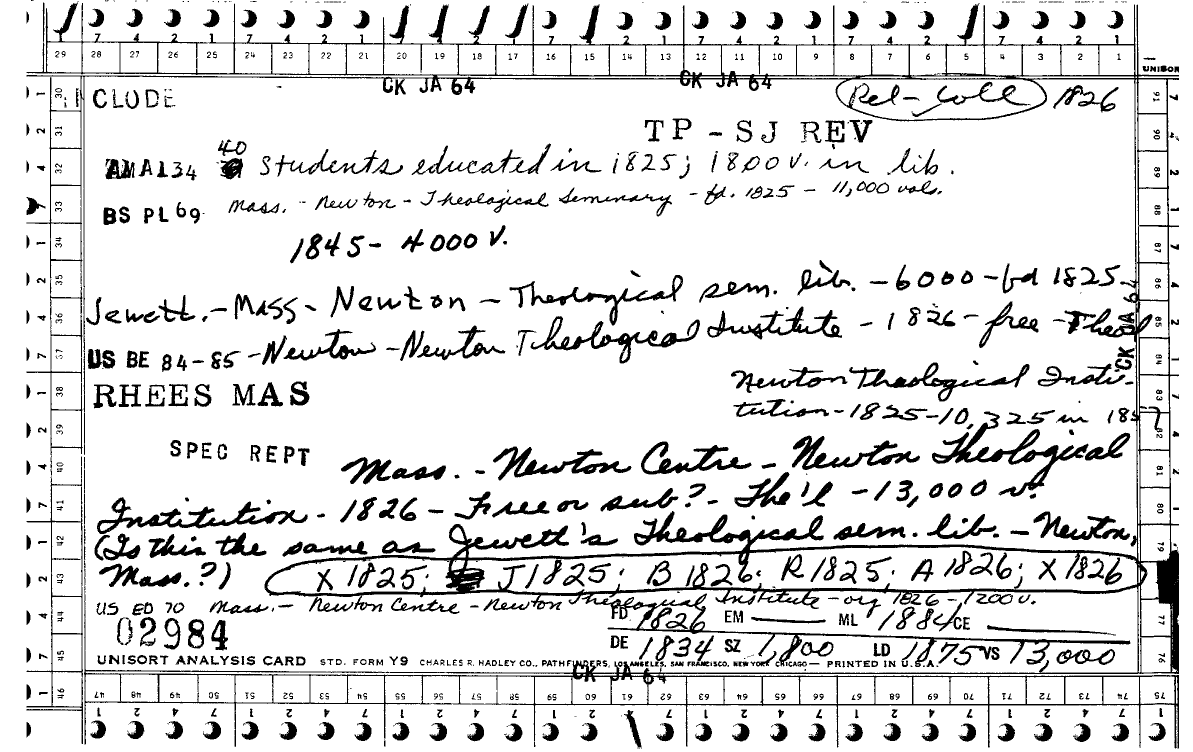 7 4 2 1 7 4 2 1 7 4 2 1 7 4 2 1 7 4 2 1 7 4 2 1
29 28 27 26 25 24 23 22 21 20 19 18 17 16 15 14 13 12 11 10 9 8 7 6 5 4 3 2 1
UNISOR
CK JA 64 CK JA 64
CLODE Rel-Coll 1826
TP - SJ REV
AMA134 40 Students educated in 1825; 1800 v. in lib.
BS PL69 Mass. - Newton - Theological Seminary - fd. 1825 - 11,000 vols.
1845 - 4000 V.
Jewett. - Mass - Newton - Theological sem. lib. - 6000 - fd 1825.
US BE 84-85 - Newton - Newton Theological Institute - 1826 - free - Theol
CK JA 64
RHEES MAS Newton Theological Insti-
tution - 1825 - 10,325 in 1857
SPEC REPT
Mass. - Newton Centre - Newton Theological
Institution - 1826 - Free or sub? - The'l - 13,000 v.
(Is this the same as Jewett's Theological sem. lib. - Newton,
Mass.?) X 1825; J 1825; B 1826; R 1825; A 1826; X 1826
US ED 70 Mass. - Newton Centre - Newton Theological Institute - org 1826 - 1200 v.
02984 FD 1826 EM — ML 1884 CE —
DE 1834 SZ 1,800 LD 1875 VS 13,000
UNISORT ANALYSIS CARD STD. FORM Y9 CHARLES R. HADLEY CO., PATHFINDERS, LOS ANGELES, SAN FRANCISCO, NEW YORK CHICAGO — PRINTED IN U.S.A.
CK JA 64
46 47 48 49 50 51 52 53 54 55 56 57 58 59 60 61 62 63 64 65 66 67 68 69 70 71 72 73 74 75